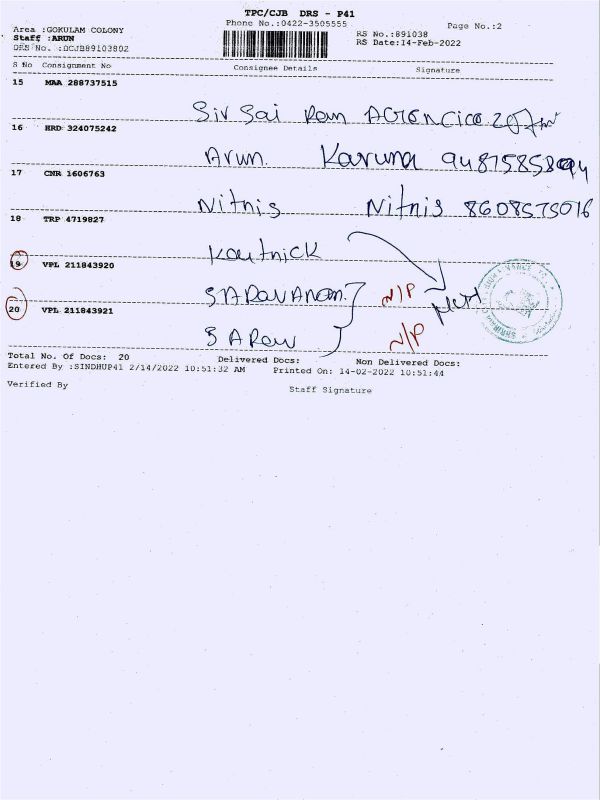 TPC/CJB DRS - P41
Phone No.:0422-3505555
Page No.:2
Area :GOKULAM COLONY
Staff :ARUN
DRS No. :DCJB89103802
RS No.:891038
RS Date:14-Feb-2022
S No Consignment No Consignee Details Signature
15 MAA 288737515
Siv Sai Ram AGENCice
16 HRD 324075242
Arun. Karuna
17 CNR 1606763
Nitnis Nitnis 8608575016
18 TRP 4719827
Kartnick
19 VPL 211843920
SARAVANAn. N/P
20 VPL 211843921
SARAV N/P
Total No. Of Docs: 20 Delivered Docs: Non Delivered Docs:
Entered By :SINDHUP41 2/14/2022 10:51:32 AM Printed On: 14-02-2022 10:51:44
Verified By Staff Signature